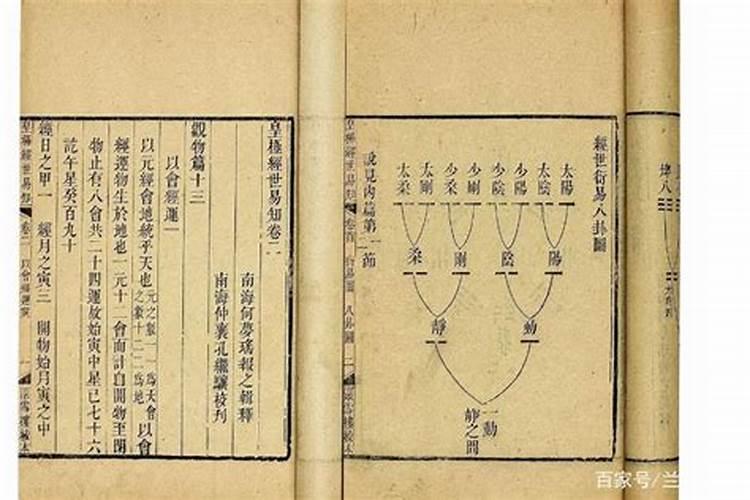 皇極經世易知卷二
南海何夢瑤報之輯釋
南海仲襄孔繼驤校刋
觀物篇十三
以會經運一
以元經會地統乎天也
以會
經運物生於地也一元十二會而計自開物至閉
物止有八會共二十四運故始寅中星已七十六
訖午星癸百九十
經日之甲一 經月之寅三 開物始月寅之中
皇極經世易知 卷二 以會經運
經世衍易八卦圖
太陽
太陰
少陽
少陰
少剛
少柔
太剛
太柔
陽
陰
剛
柔
動
靜
一動
靜之間
說見內篇第一節
皇極經世易知 卷首 衍易圖 八卦圖 二
百家号/兰